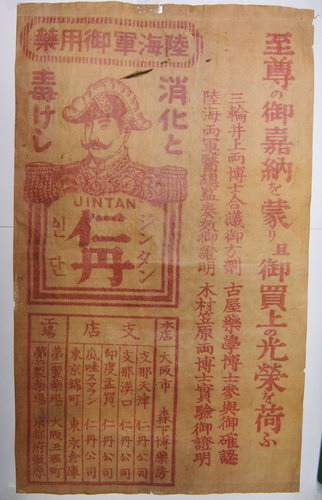 陸海軍御用藥
消化と
毒けし
JINTAN
仁丹
ジンタン
인단
至尊の御嘉納を蒙り且御買上の光榮を荷ふ
三輪井上兩博士合議御方劑 古屋藥學博士參與御確認
陸海両軍醫總監奏效御證明 木村笠原両博士實驗御證明
本店 大阪市 森下博藥房
支店
支那天津 仁丹公司
支那漢口 仁丹公司
印度孟買 仁丹公司
瓜哇スマラン 仁丹公司
東京錦町 東京倉庫
工場
第壹藥場 大阪玉堀町
第貳製藥場 京都府柳原